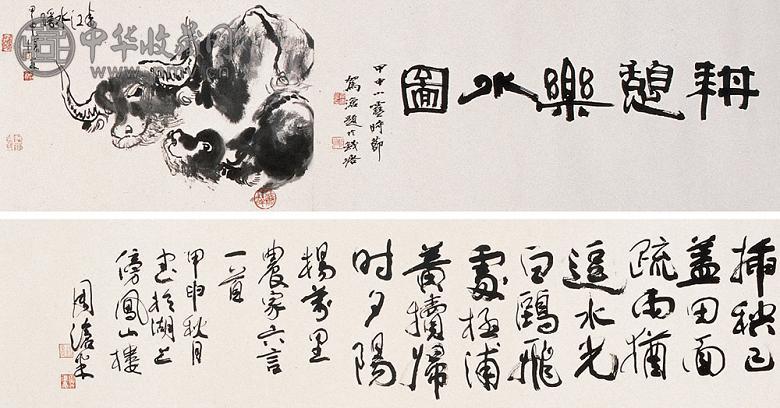 耕憩樂水圖
甲申小雪時節
題於錢塘
春江水暖
中华收藏网
插秧已
蓋田面
疏雨猶
逗水光
白鷗飛
處極浦
黃犢歸
時夕陽
楊萬里
農家六言
一首
甲申秋月
書於湖上
傍鳳山樓
周滄米